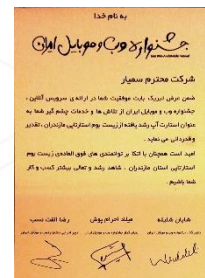 به نام خدا
جشنواره وب و موبایل ایران
شرکت محترم سمیار
ضمن عرض تبریک بابت موفقیت شما در ارائه ی سرویس آنلاین ،
جشنواره وب و موبایل ایران از تلاش ها و خدمات چشم گیر شما به
عنوان استارت آپ رشد یافته از زیست بوم استارتاپی مازندران ، تقدیر
و قدردانی می نماید .
امید است همچنان با اتکا بر توانمندی های فوق العاده‌ی زیست بوم
استارتاپی استان مازندران ، شاهد رشد و تعالی بیشتر کسب و کار
شما باشیم .
شایان شلیله
میلاد احرام پوش
رضا الفت نسب